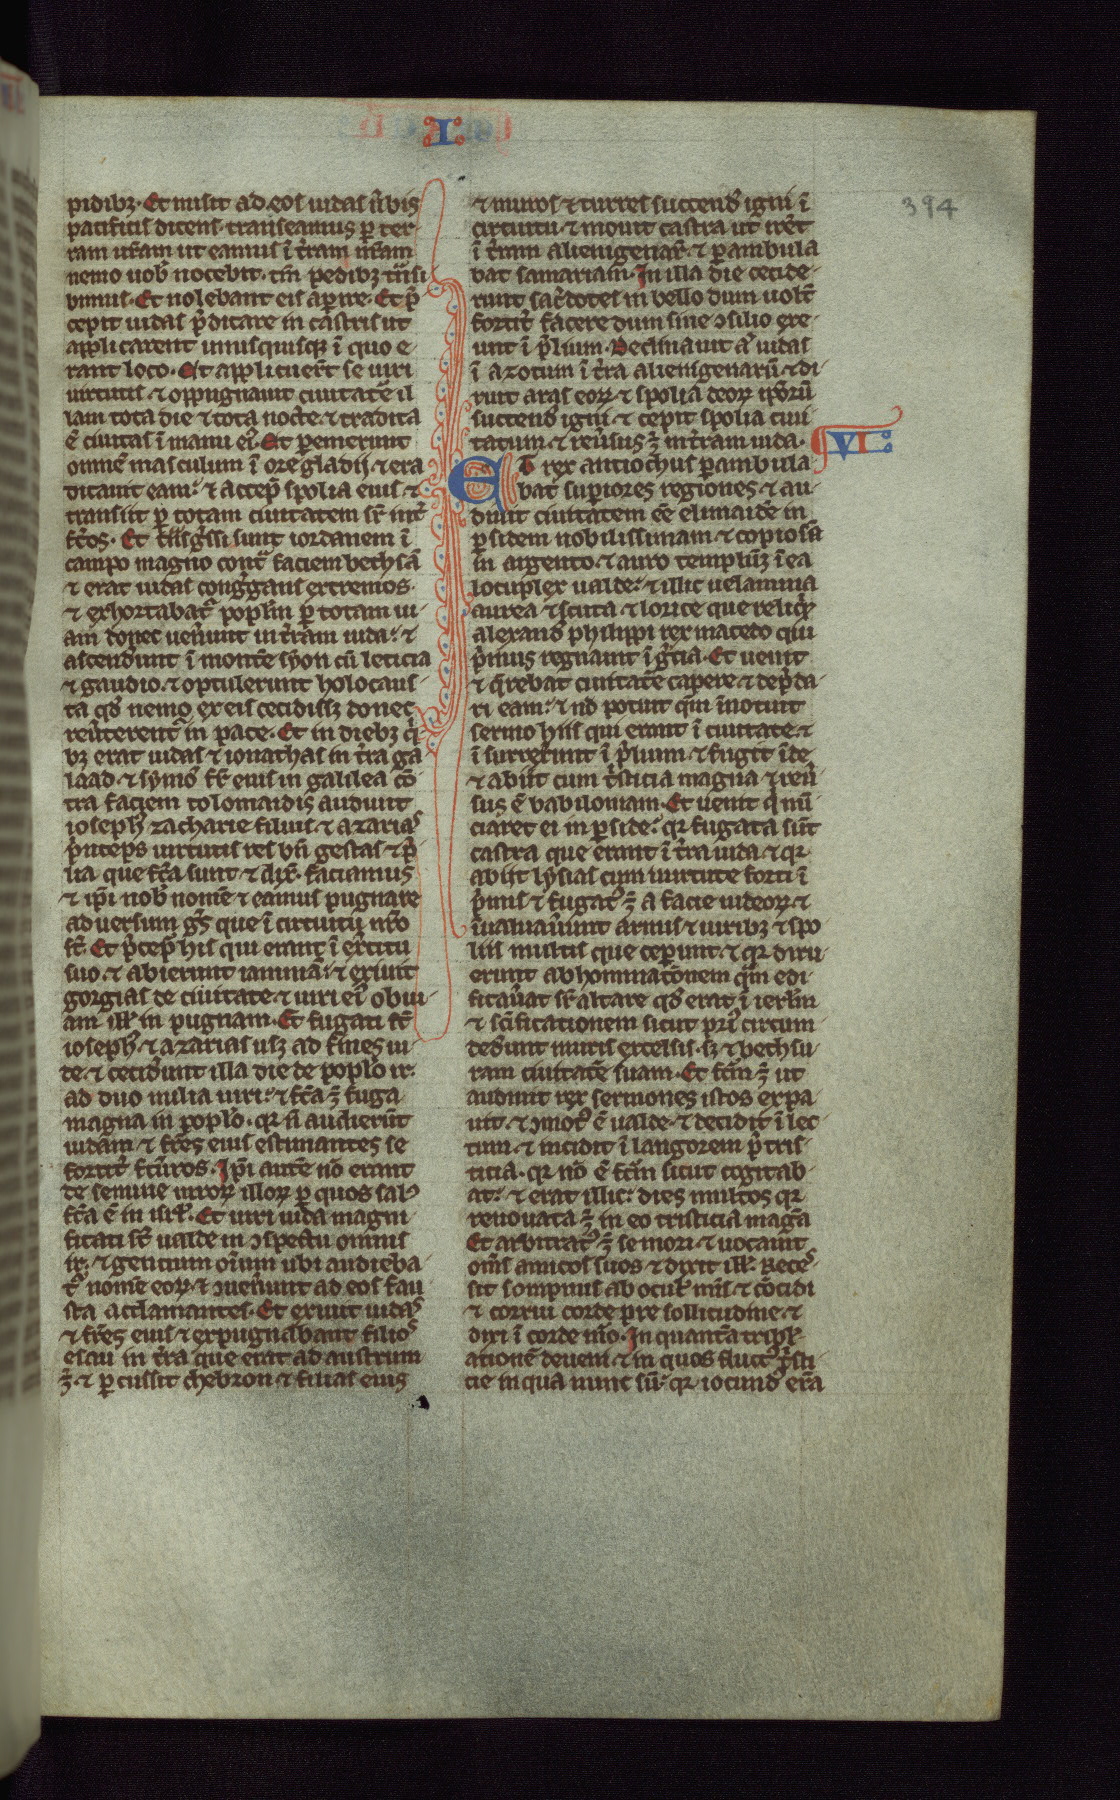 I
394
pidibꝫ. Et misit ad eos iudas ũbis
pacificis dicens. transeamus ꝑ ter-
ram ur̃am ut eamus ĩ t̃ram nr̃am
nemo uob̾ nocebit. tm̃ pedibꝫ tñsi
bimus. Et nolebant eis aꝑire. Et p̃
cepit iudas p̃dicare in castris ut
applicarent unusquisqꝫ ĩ quo e-
rant loco. Et applicuer̃t se uiri
uirtutis ⁊ oppugnauit ciuitatẽ il
lam tota die ⁊ tota nocte. ⁊ tradita
ẽ ciuitas ĩ manu ei᷒. Et ꝑemerunt
omnẽ masculum ĩ ore gladij ⁊ era
dicauit eam. ⁊ accep̃ spolia eius ⁊
transiit ꝑ totam ciuitatem sr̃ int̃
fc̃os. Et t̃nsg̃ssi sunt iordanem ĩ
campo magno cont̃ faciem bethsã
⁊ erat iudas cong̃gans extremos.
⁊ exhortabat̃ poplm̃ ꝑ totam ui-
am donec uen̾unt in t̃ram iuda. ⁊
ascend̾unt ĩ montẽ syon cũ leticia
⁊ gaudio. ⁊ optulerunt holocaus-
ta qd̾ nemo ex eis cecidissꝫ donec
reũterent̃ in pace. Et in diebꝫ q̃i
bꝫ erat iudas ⁊ ionathas in t̃ra ga
laad. ⁊ symõ fr̃ eius in galilea cõ-
tra faciem tolomaidis audiuit
ioseph᷒ zacharie filius. ⁊ azarias
p̃nceps uirtutis res bñ gestas ⁊ p̃
lia que fc̃a sunt ⁊ dix̃. faciamus
⁊ ip̃i nob̾ nomẽ ⁊ eamus pugnare
aduersum g̃s que ĩ circuitu nr̃o
st̃. Et p̃cep̃ his qui erant ĩ ex̾citu
suo. ⁊ abierunt iamniã. ⁊ exiuit
gorgias de ciuitate. ⁊ uiri ei᷒ obui-
am ill̾ in pugnam. Et fugati st̃
ioseph᷒ ⁊ azarias usqꝫ ad fines iu-
de. ⁊ cecid̾unt illa die de poplo̾ ir̃.
ad duo milia uiri. ⁊ fc̃a ꝫ̃ fuga
magna in poplo̾. qr̃ ñ audierũt
iudam ⁊ fr̃es eius estimantes se
fortit̾ fc̃uros. Ip̃i autẽ nõ erant
de semine uiroꝝ illoꝝ ꝑ quos sal᷒
fc̃a ẽ in isrl̾. Et uiri iuda magni-
ficati st̃ ualde in ꝯspectu omnis
ir̃. ⁊ gentium oĩum ubi audieba-
t̃ nomẽ eoꝝ. ⁊ ꝯuen̾unt ad eos fau
sta acclamantes. Et exiuit iudas
⁊ fr̃es eius ⁊ expugnabant filios
esau in t̃ra que erat ad austrum
ꝫ̃. ⁊ ꝑcussit chebron ⁊ filias eius
⁊ muros ⁊ turres succend̾ igni ĩ
circuitu. ⁊ mouit castra ut iret̃
ĩ t̃ram alienigenaꝝ. ⁊ ꝑambula
bat samariam. In illa die cecide-
runt sac̾dotes in bello dum uolt̃
fortit̾ facere dum sine ꝯsilio exe-
unt ĩ p̃lium. Declinauit aũ iudas
ĩ azotum ĩ t̃ra alienigenarũ. ⁊ di-
ruit aras eoꝝ. ⁊ spolia deoꝝ ip̃orũ
succend̾ igni. ⁊ cepit spolia ciui-
tatum. ⁊ reũsus ꝫ̃ in t̃ram iuda.
VI
ET rex antiochus ꝑambula-
bat suꝑiores regiones. ⁊ au-
diuit ciuitatem eẽ elimaidẽ in
ꝑsidem nobilissimam ⁊ copiosã
in argento. ⁊ auro templũqꝫ ĩ ea
locuplex ualde. ⁊ illic uelamina
aurea ⁊ scuta ⁊ lorice que reliq̃t
alexand̾ philippi rex macedo qui
p̃mus regnauit ĩ g̃cia. Et uenit
⁊ q̃rebat ciuitatẽ capere ⁊ dep̃da-
ri eam. ⁊ nõ potuit qm̃ ĩnotuit
sermo hiis qui erant ĩ ciuitate. ⁊
ĩ surrexerunt ĩ p̃lium. ⁊ fugit ĩde
⁊ abiit cum t̃sticia magna ⁊ reũ-
sus ẽ babiloniam. Et uenit q̃ nũ-
ciaret ei in ꝑside. qr̃ fugata sũt
castra que erant ĩ t̃ra iuda ⁊ qr̃
abiit lysias cum uirtute forti ĩ
p̃mis ⁊ fugat᷒ ꝫ̃ a facie iudeoꝝ. ⁊
ĩualuũunt armis ⁊ uiribꝫ ⁊ spo
liis multis que ceꝑunt. ⁊ qr̃ diru-
erunt abhominacõnem qm̃ edi-
ficau̾at sr̃ altare qd̾ erat ĩ ierlm̃
⁊ sc̃ificationem sicut pri᷒ circum-
ded̾unt muris excelsis. sꝫ ⁊ bethsu-
ram ciuitatẽ suam. Et fc̃m ꝫ̃ ut
audiuit rex sermones istos expa-
uit. ⁊ ꝯmot᷒ ẽ ualde. ⁊ decidit ĩ lec
tum. ⁊ incidit ĩ langorem p̃ tris-
ticia. qr̃ nõ ẽ fc̃m sicut cogitab-
at. ⁊ erat illic dies multos qr̃
renouata ꝫ̃ in eo tristicia mag̃a
Et arbitrat᷒ ꝫ̃ se mori. ⁊ uocauit
om̃s amicos suos ⁊ dixit ill̾. Reces-
sit sompnus ab ocul̾ mis̃ ⁊ cõcidi
⁊ corrui corde pre sollicitudine. ⁊
dixi ĩ corde mo̾. In quantã tribl̾-
ationẽ deueni ⁊ in quos fluct᷒ t̃sti-
cie in qua nunc sũ. qr̃ iocund᷒ erã